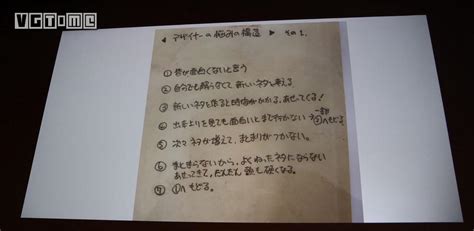 VGTIME
◀ デザイナーの悩みの構造 ▶ その1.
① 皆が面白くないと言う
② 自分でも頭らなくて 新しいネタを考える
③ 新しいネタを作ると時間がかかる、あせってくる!
④ 出来上りを見ても面白いとまで行かない
一部 ①へもどる
⑤ 次々ネタが増えて、まとまりがつかない。
⑥ まとまらないから、よくねったネタにならない
あせってきて、だんだん頭も硬くなる。
⑦ ①へもどる。